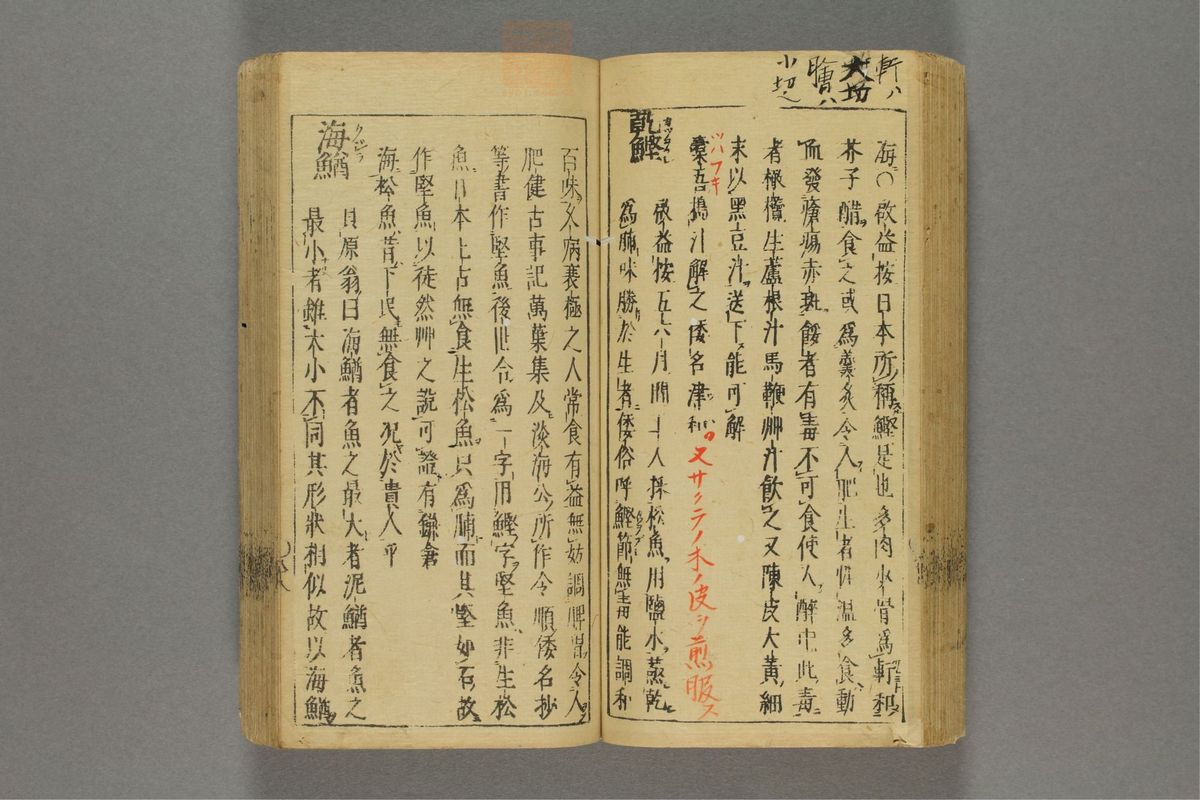 斬ハ
大切
膾ハ
小切也
海〇啟益按日本所稱鰹是也多肉少骨爲斬和
芥子醋食之或爲羹炙令人肥生者性温多食動
血發瘡瘍赤斑餒者有毒不可食使人醉中此毒
者橄欖生蘆根汁馬鞭艸汁飲之又陳皮大黄細
末以黑豆汁送下能可解
ツハフキ
橐吾搗汁解之倭名津和 又サクラノ木ノ皮ヲ煎服ス
乾鰹
啟益按五六月間土人採松魚用鹽水蒸乾
爲脯味勝於生者倭俗呼鰹節無毒能調和
百味久病衰極之人常食有益無妨調脾胃令人
肥健古事記萬葉集及淡海公所作令順倭名抄
等書作堅魚後世合爲一字用鰹字堅魚非生松
魚日本上古無食生松魚只爲脯而其堅如石故
作堅魚以徒然艸之説可證有鎌倉
海松魚昔下民無食之況於貴人乎
海鰌
クジラ
貝原翁曰海鰌者魚之最大者泥鰌者魚之
最小者雖大小不同其形狀相似故以海鰌